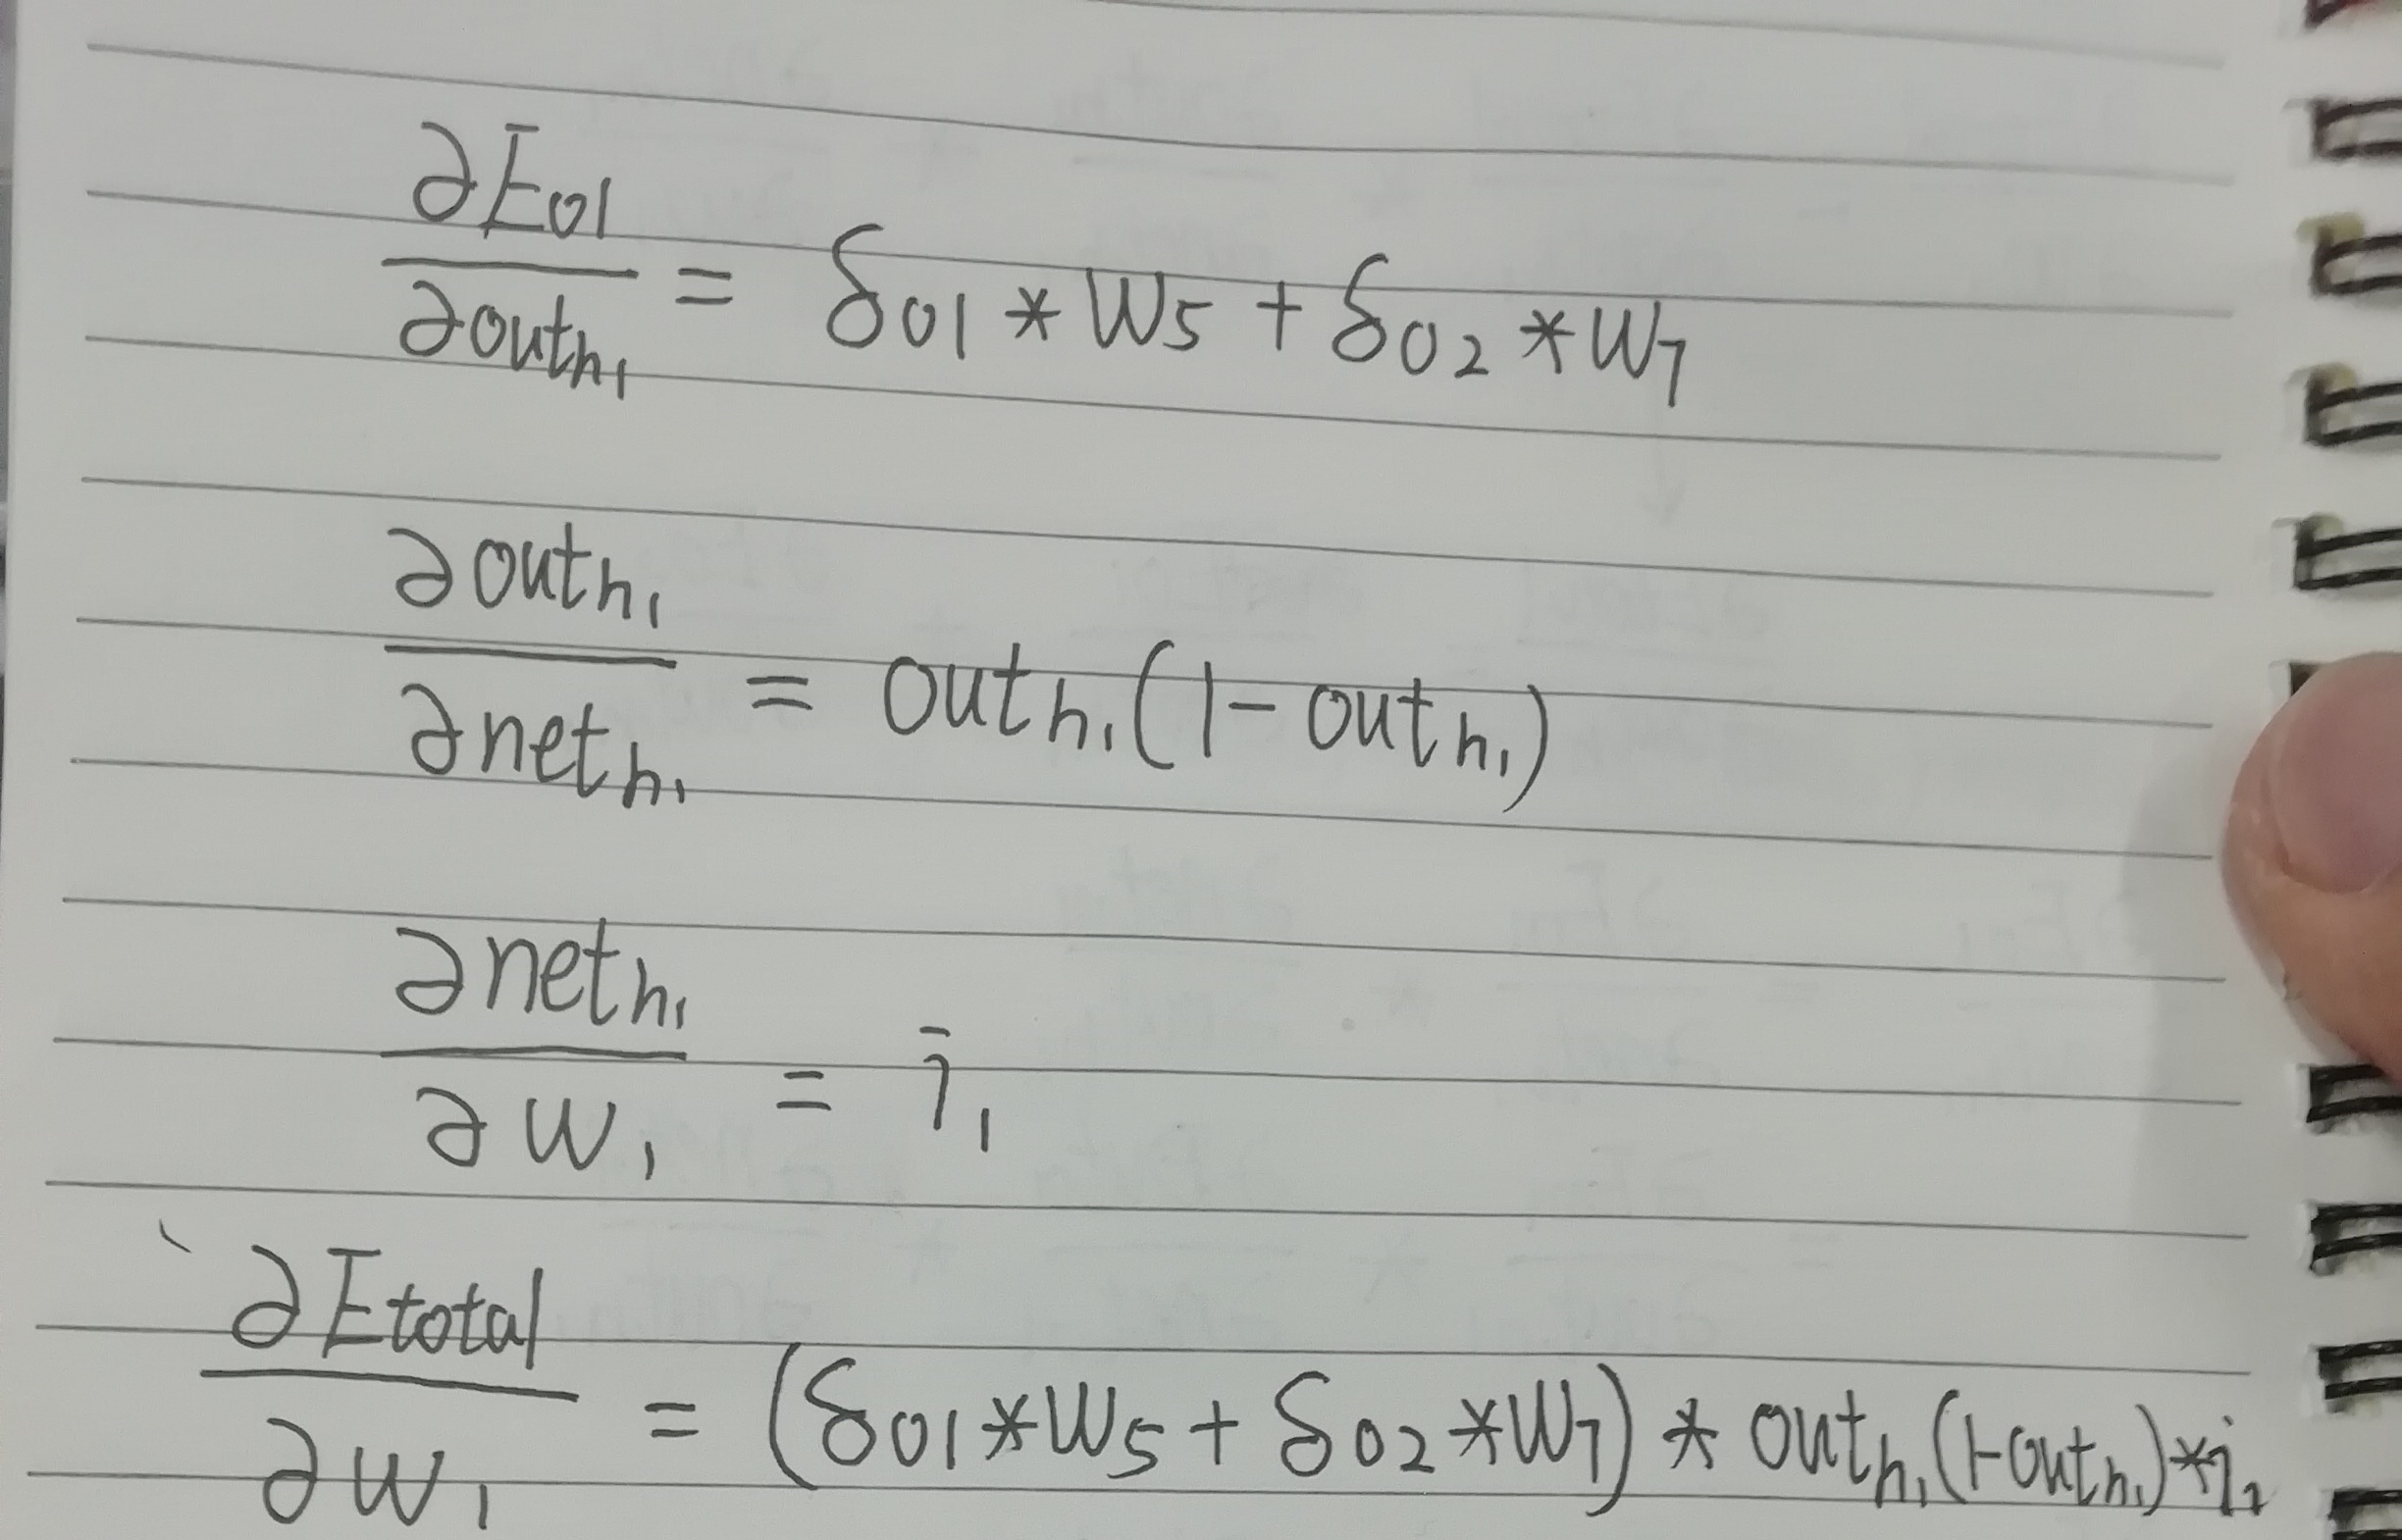 ∂E₀₁/∂outₕ₁ = δ₀₁ * W₅ + δ₀₂ * W₇
∂outₕ₁/∂netₕ₁ = outₕ₁(1 - outₕ₁)
∂netₕ₁/∂w₁ = i₁
∂Etotal/∂w₁ = (δ₀₁ * W₅ + δ₀₂ * W₇) * outₕ₁(1-outₕ₁) *